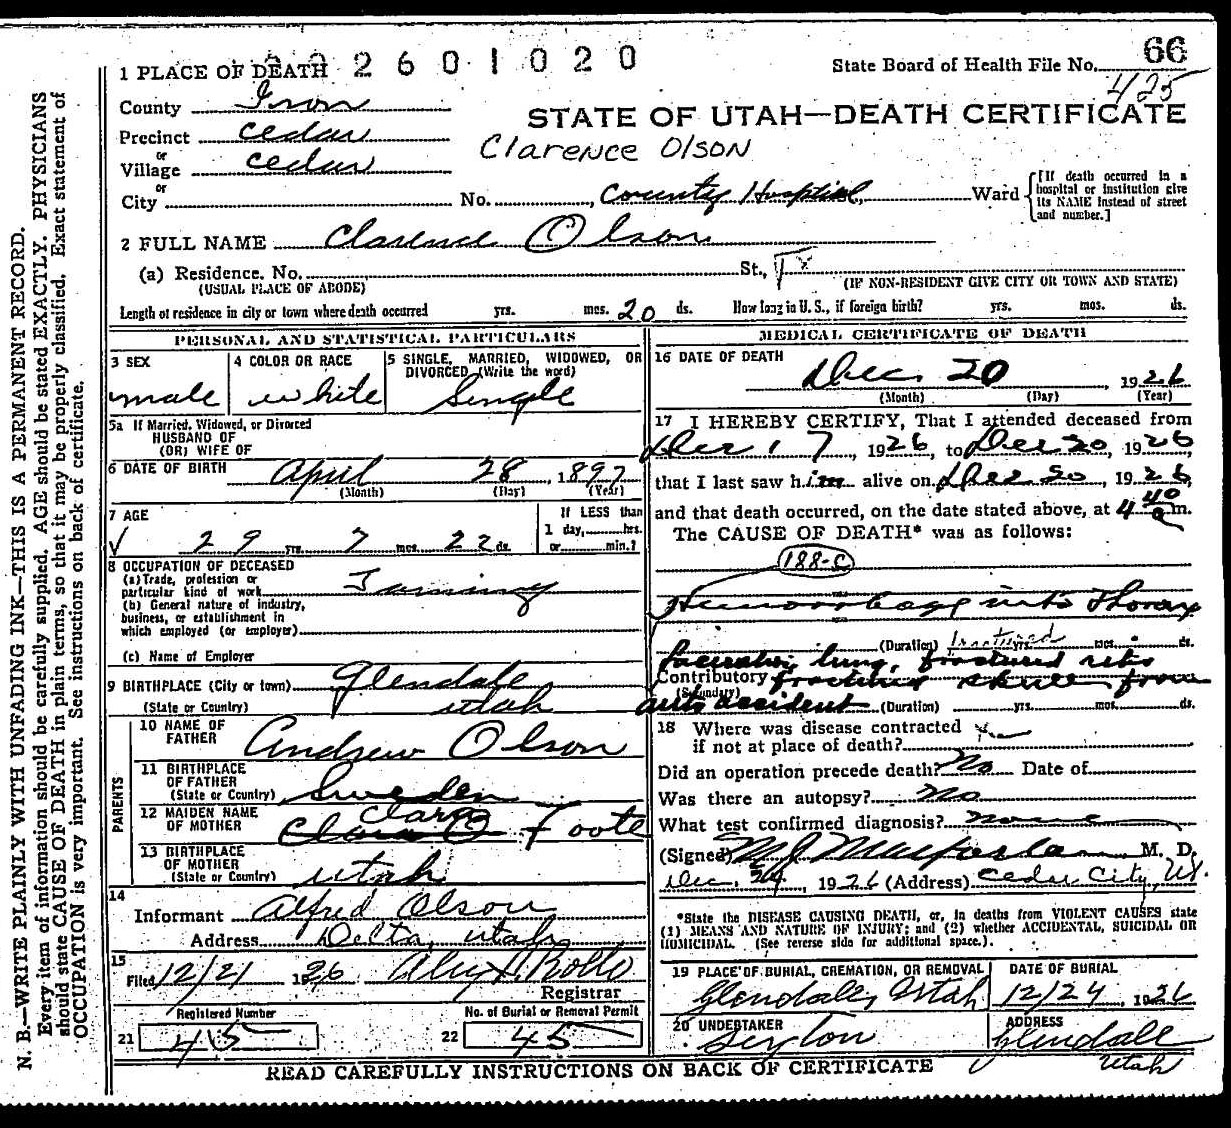 66
2601020
1 PLACE OF DEATH
State Board of Health File No. 425
County Iron
STATE OF UTAH—DEATH CERTIFICATE
Precinct Cedar
Clarence Olson
or
Village Cedar
or
City No. County Hospital, Ward
[If death occurred in a
hospital or institution give
its NAME instead of street
and number.]
2 FULL NAME Clarence Olson
(a) Residence. No. St.,
(USUAL PLACE OF ABODE)
(IF NON-RESIDENT GIVE CITY OR TOWN AND STATE)
Length of residence in city or town where death occurred yrs. mos. 20 ds. How long in U. S., if foreign birth? yrs. mos. ds.
PERSONAL AND STATISTICAL PARTICULARS
3 SEX
male
4 COLOR OR RACE
white
5 SINGLE, MARRIED, WIDOWED, OR
DIVORCED (Write the word)
Single
5a If Married, Widowed, or Divorced
HUSBAND OF
(OR) WIFE OF
6 DATE OF BIRTH April 28, 1897
(Month) (Day) (Year)
7 AGE
29 yrs. 7 mos. 22 ds.
If LESS than
1 day, hrs.
or min.?
8 OCCUPATION OF DECEASED
(a) Trade, profession or
particular kind of work
(b) General nature of industry,
business, or establishment in
which employed (or employer)
(c) Name of Employer
9 BIRTHPLACE (City or town) Glendale
(State or Country) Utah
PARENTS
10 NAME OF
FATHER Andrew Olson
11 BIRTHPLACE
OF FATHER
(State or Country) Sweden
12 MAIDEN NAME
OF MOTHER Clara Foote
13 BIRTHPLACE
OF MOTHER
(State or Country) Utah
14
Informant Alfred Olson
Address Delta, Utah
15
Filed 12/21 1926
Registrar
Registered Number
21 45
No. of Burial or Removal Permit
22 45
MEDICAL CERTIFICATE OF DEATH
16 DATE OF DEATH
Dec. 20, 1926
(Month) (Day) (Year)
17 I HEREBY CERTIFY, That I attended deceased from
Dec 17, 1926, to Dec 20, 1926
that I last saw him alive on Dec 20, 1926,
and that death occurred, on the date stated above, at 4 40 a m.
The CAUSE OF DEATH* was as follows:
188-C
Hemorrhage into Thorax
(Duration) fractured yrs. mos. ds.
lung, fractured ribs
Contributory fractured skull from
(Secondary)
auto accident (Duration) yrs. mos. ds.
18 Where was disease contracted
if not at place of death?
Did an operation precede death? No Date of
Was there an autopsy? no
What test confirmed diagnosis? none
(Signed) M J Macfarlane M. D.
Dec. 1926 (Address) Cedar City, Ut.
*State the DISEASE CAUSING DEATH, or, in deaths from VIOLENT CAUSES state
(1) MEANS AND NATURE OF INJURY; and (2) whether ACCIDENTAL, SUICIDAL OR
HOMICIDAL. (See reverse side for additional space.)
19 PLACE OF BURIAL, CREMATION, OR REMOVAL
Glendale, Utah
DATE OF BURIAL
12/24, 1926
20 UNDERTAKER
ADDRESS
Glendale
Utah
READ CAREFULLY INSTRUCTIONS ON BACK OF CERTIFICATE
N. B.—WRITE PLAINLY WITH UNFADING INK—THIS IS A PERMANENT RECORD.
Every item of information should be carefully supplied. AGE should be stated EXACTLY. PHYSICIANS
should state CAUSE OF DEATH in plain terms, so that it may be properly classified. Exact statement of
OCCUPATION is very important. See instructions on back of certificate.